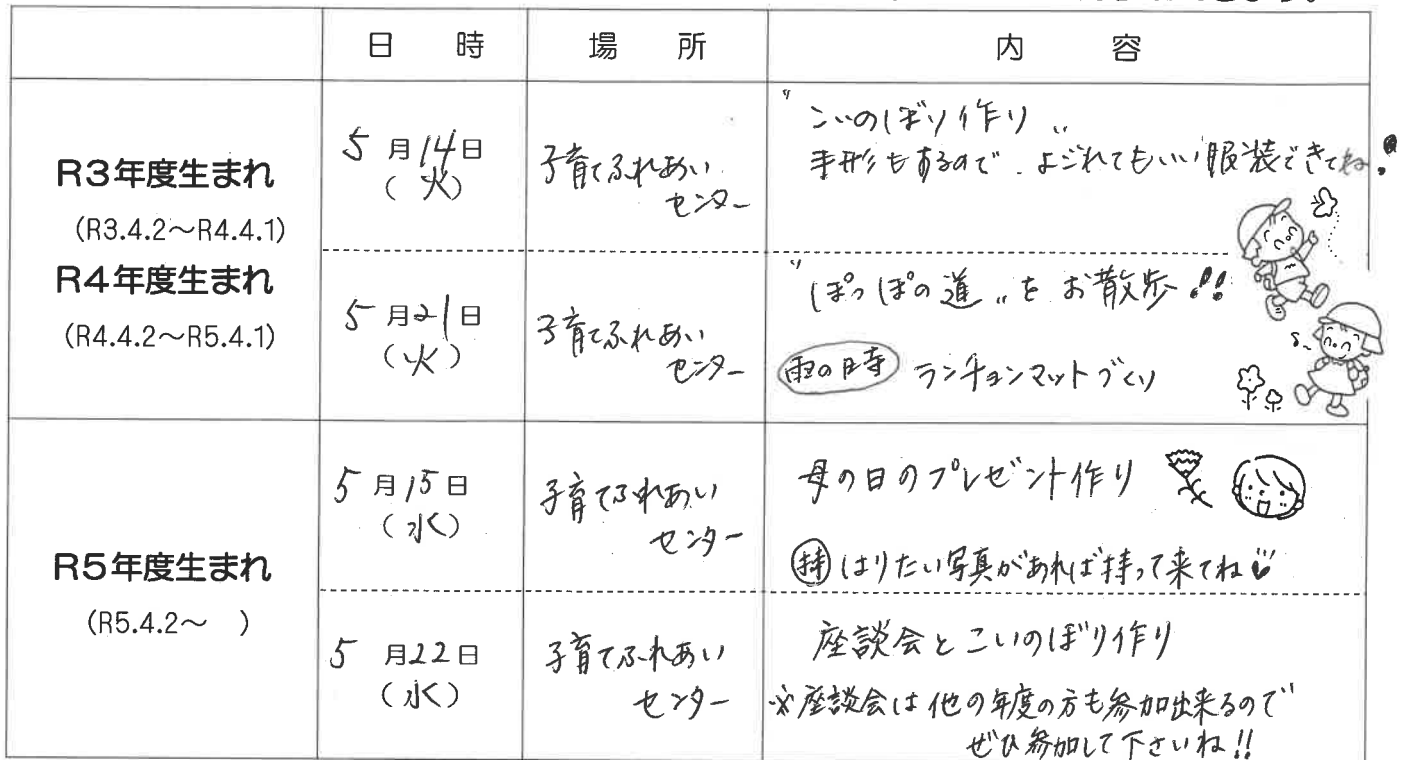 日 時 場 所 内 容
R3年度生まれ
(R3.4.2～R4.4.1)
R4年度生まれ
(R4.4.2～R5.4.1)
5月14日
(火)
子育てふれあい
センター
"こいのぼり作り"
手形もするので、よごれてもいい服装できてね!
5月21日
(火)
子育てふれあい
センター
"ぽっぽの道"をお散歩!!
雨の時 ランチョンマットづくり
R5年度生まれ
(R5.4.2～ )
5月15日
(水)
子育てふれあい
センター
母の日のプレゼント作り
持 はりたい写真があれば持って来てね
5月22日
(水)
子育てふれあい
センター
座談会とこいのぼり作り
※座談会は他の年度の方も参加出来るので
ぜひ参加して下さいね!!